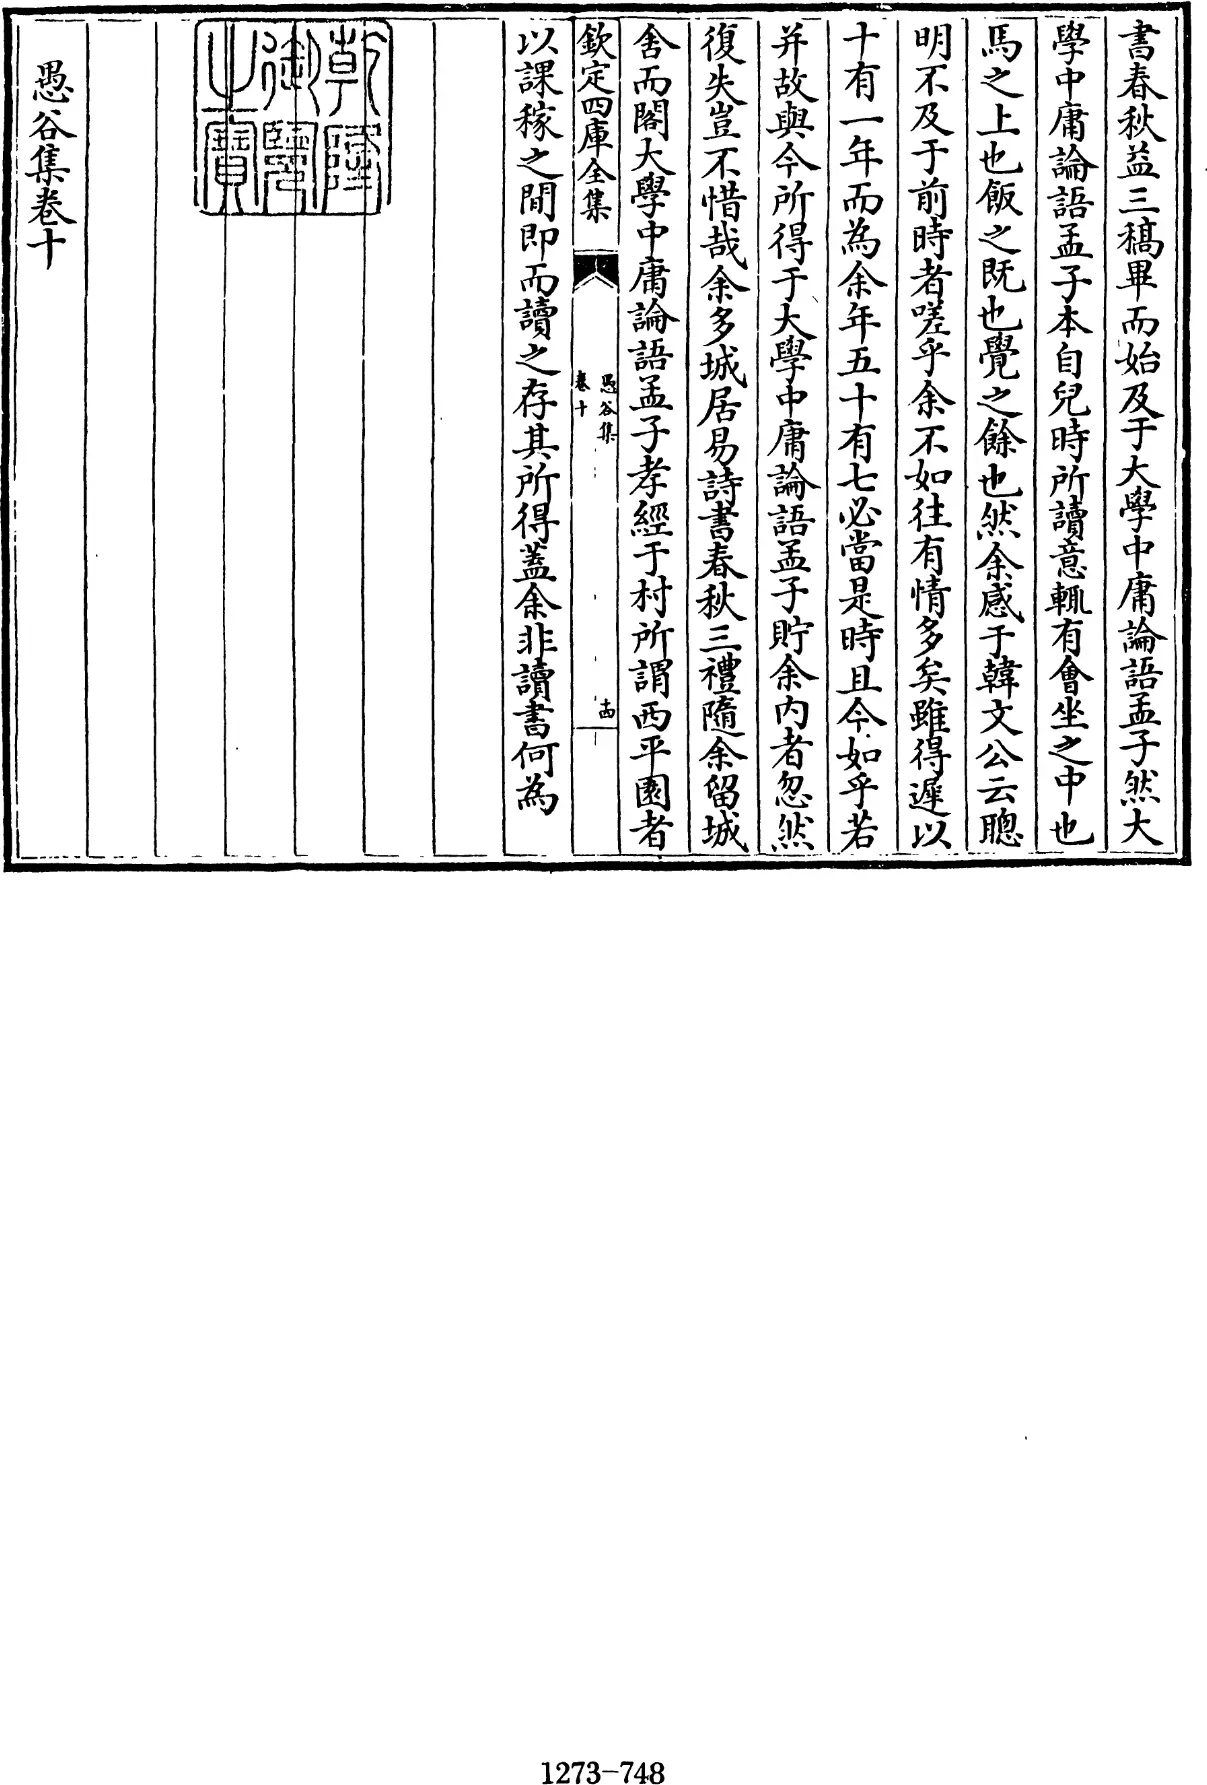 書春秋益三稿畢而始及于大學中庸論語孟子然大
學中庸論語孟子本自兒時所讀意輒有會坐之中也
馬之上也飯之既也覺之餘也然余感于韓文公云聰
明不及于前時者嗟乎余不如往有情多矣雖得遲以
十有一年而為余年五十有七必當是時且今如乎若
并故與今所得于大學中庸論語孟子貯余内者忽然
復失豈不惜哉余多城居易詩書春秋三禮隨余留城
舍而閣大學中庸論語孟子孝經于村所謂西平園者
欽定四庫全集
愚谷集
卷十
十四
以課稼之間即而讀之存其所得蓋余非讀書何為
乾隆
御覽
之寶
愚谷集卷十
1273-748